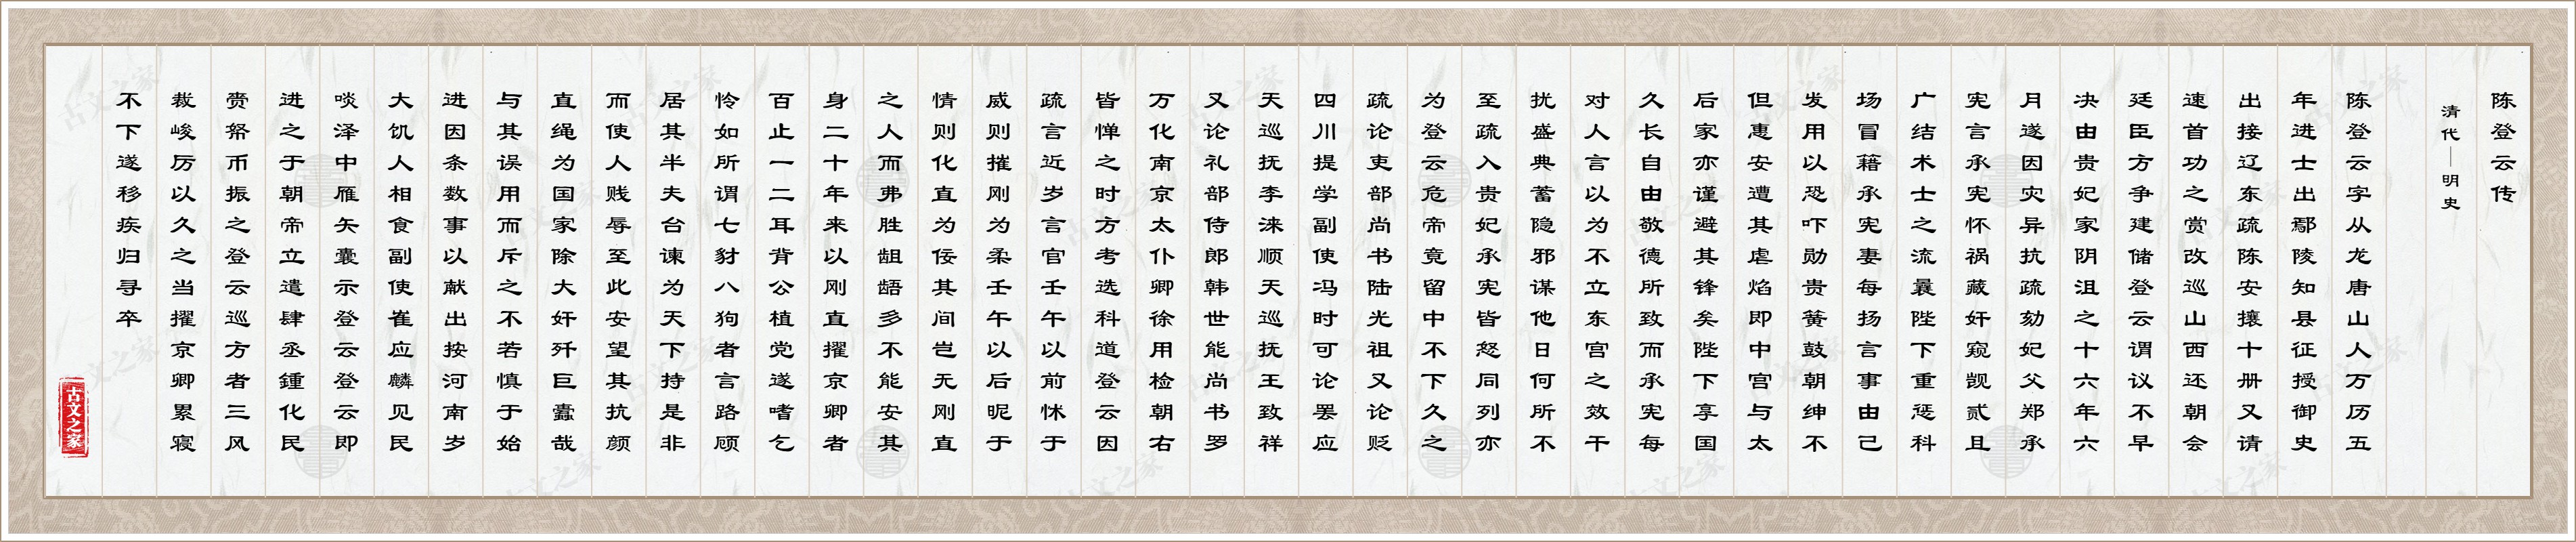 陈登云传
清代—明史
陈登云字从龙唐山人万历五
年进士出鄢陵知县征授御史
出接辽东疏陈安攘十册又请
速首功之赏改巡山西还朝会
廷臣方争建储登云谓议不早
决由贵妃家阴沮之十六年六
月遂因灾异抗疏劾妃父郑承
宪言承宪怀祸藏奸窥觊贰且
广结术士之流曩陛下重惩科
场冒藉承宪妻每扬言事由己
发用以恐吓勋贵簧鼓朝绅不
但惠安遭其虐焰即中宫与太
后家亦谨避其锋矣陛下享国
久长自由敬德所致而承宪每
对人言以为不立东宫之效干
扰盛典蓄隐邪谋他日何所不
至疏入贵妃承宪皆怒同列亦
为登云危帝竟留中不下久之
疏论吏部尚书陆光祖又论贬
四川提学副使冯时可论罢应
天巡抚李涞顺天巡抚王致祥
又论礼部侍郎韩世能尚书罗
万化南京太仆卿徐用检朝右
皆惮之时方考选科道登云因
疏言近岁言官壬午以前怵于
威则摧刚为柔壬午以后昵于
情则化直为佞其间岂无刚直
之人而弗胜龃龉多不能安其
身二十年来以刚直擢京卿者
百止一二耳背公植党遂嗜乞
怜如所谓七豺八狗者言路顾
居其半夫台谏为天下持是非
而使人贱辱至此安望其抗颜
直绳为国家除大奸歼巨蠹哉
与其误用而斥之不若慎于始
进因条数事以献出按河南岁
大饥人相食副使崔应麟见民
啖泽中雁矢囊示登云登云即
进之于朝帝立遣肆丞锺化民
赍帑币振之登云巡方者三风
裁峻厉以久之当擢京卿累寝
不下遂移疾归寻卒
古文之家